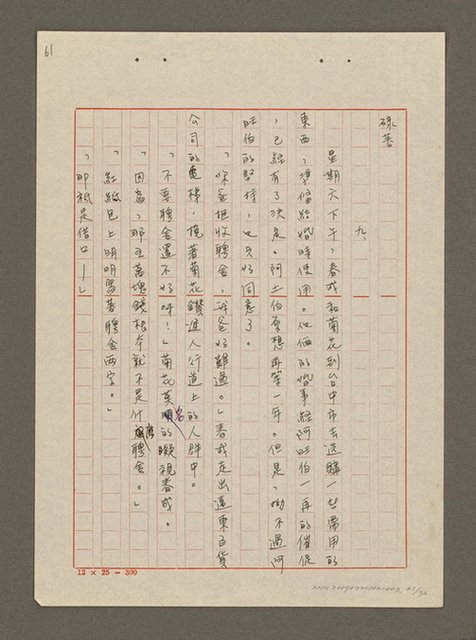 61
碌蕃
九、
星期六下午，春成和菊花到台中市去選購一些常用的
東西，準備結婚時使用。他倆的婚事經阿旺伯一再的催促
，已經有了決定。阿土伯原想再等一年。但是，拗不過阿
旺伯的堅持，也只好同意了。
「你爸拒收聘金，我爸好難過。」春成走出遠東百貨
公司的電梯，挽著菊花鑽進人行道上的人群中。
「不要聘金還不好呀？」菊花莫名的凝視春成。
「因為，那五萬塊錢根本就不是什麼聘金。」
「紅紙包上明明寫著聘金兩字。」
「那祇是借口—」
12 × 25 = 300